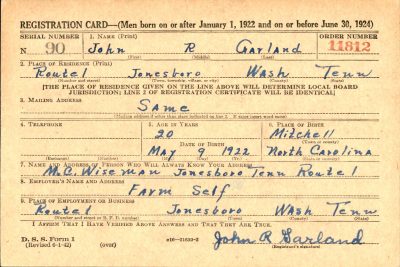 REGISTRATION CARD—(Men born on or after January 1, 1922 and on or before June 30, 1924)
SERIAL NUMBER 1. NAME (Print) ORDER NUMBER
N 90 John R Garland 11812
(First) (Middle) (Last)
2. PLACE OF RESIDENCE (Print)
Route 1 Jonesboro Wash Tenn
(Number and street) (Town, township, village, or city) (County) (State)
[THE PLACE OF RESIDENCE GIVEN ON THE LINE ABOVE WILL DETERMINE LOCAL BOARD
JURISDICTION; LINE 2 OF REGISTRATION CERTIFICATE WILL BE IDENTICAL]
3. MAILING ADDRESS
Same
[Mailing address if other than place indicated on line 2. If same insert word same]
4. TELEPHONE 5. AGE IN YEARS 6. PLACE OF BIRTH
20 Mitchell
DATE OF BIRTH (Town or county)
May 9 1922 North Carolina
(Mo.) (Day) (Yr.) (State or country)
7. NAME AND ADDRESS OF PERSON WHO WILL ALWAYS KNOW YOUR ADDRESS
M.C. Wiseman Jonesboro Tenn Route 1
8. EMPLOYER'S NAME AND ADDRESS
Farm Self
9. PLACE OF EMPLOYMENT OR BUSINESS
Route 1 Jonesboro Wash Tenn
(Number and street or R. F. D. number) (Town) (County) (State)
I AFFIRM THAT I HAVE VERIFIED ABOVE ANSWERS AND THAT THEY ARE TRUE.
D. S. S. Form 1
(Revised 6-9-42) (over) 16—21630-2 John R Garland
(Registrant's signature)